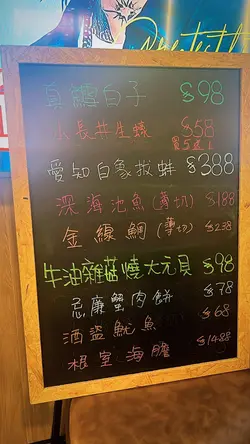 真鱈白子 $98
水長井生蠔 $58
買5送1
愛知白象拔蚌 $388
深海池魚(薄切) $188
金線鯛(薄切) $238
牛油雜菇燒大元貝 $98
忌廉蟹肉餅 $78
酒盜魷魚 $68
根室海膽 $1488